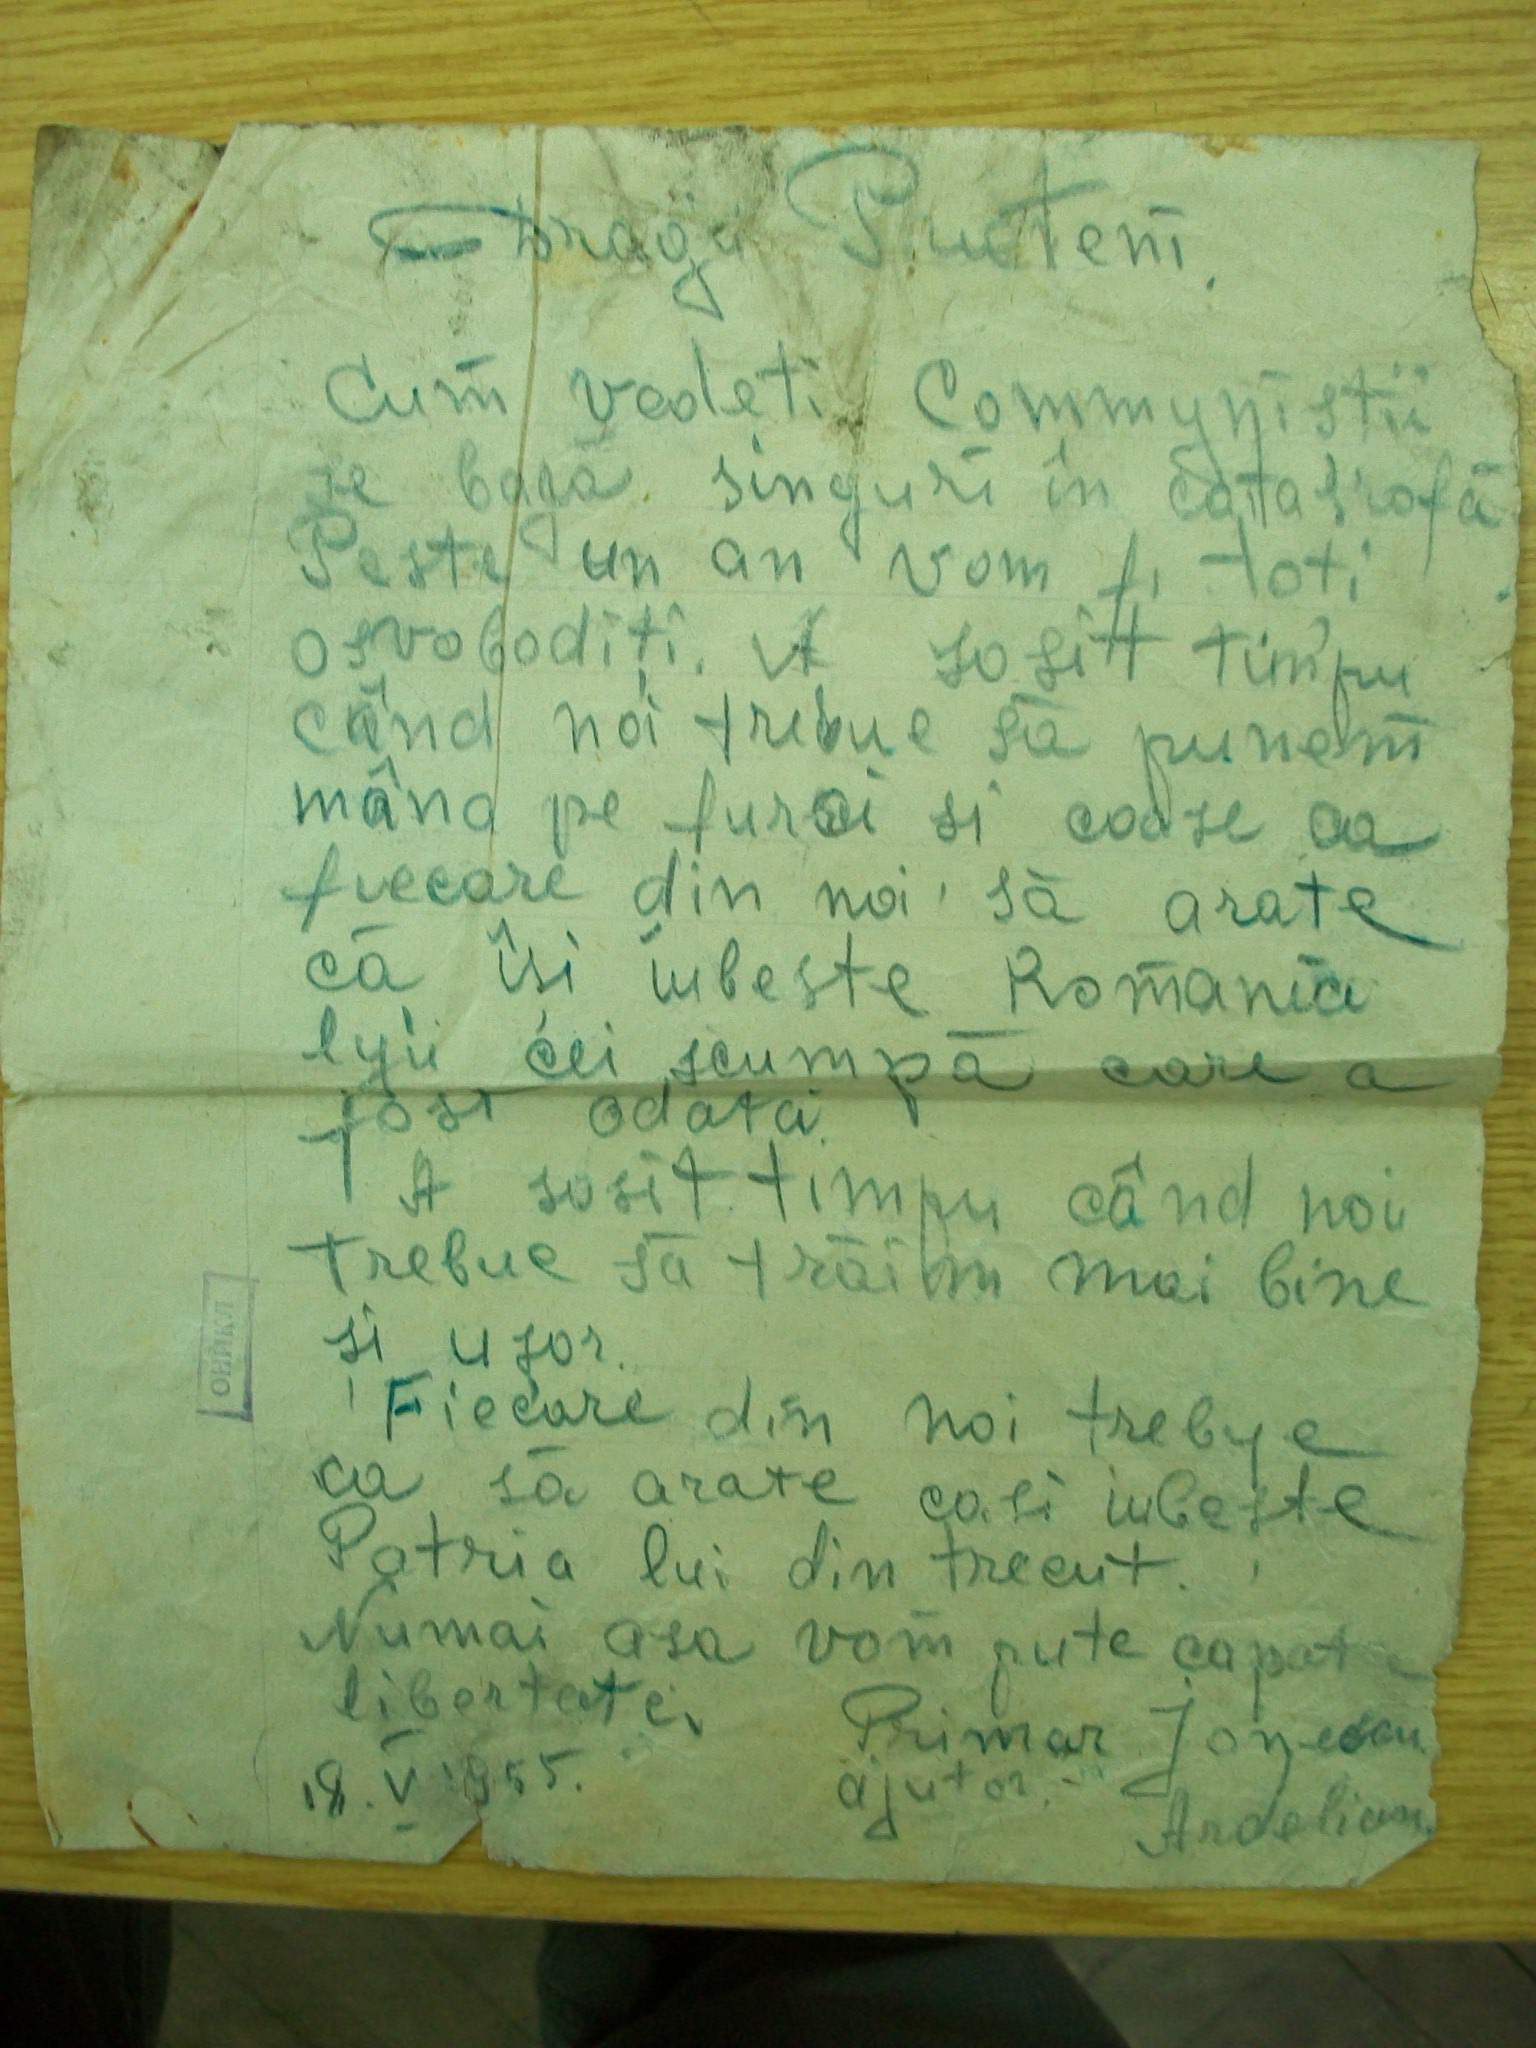 Dragii Prieteni.
Cum vedeți Communiștii
se bagă singuri în catastrofă
Peste un an vom fi toți
osvobodiți. A sositt timpu
când noi trebue să punem
mâna pe furci și coase ca
fiecare din noi să arate
că își iubește Romania
lyii cei scumpă care a
fost odată.
A sosit timpu când noi
trebue să trăim mai bine
și ușor.
Fiecare din noi trebye
ca să arate cași iubește
Patria lui din trecut.
Numai așa vom pute capata
libertate.
18.V 1955.
Primar Jonescu.
ajutor.
Ardelian.
ОНИКЛ